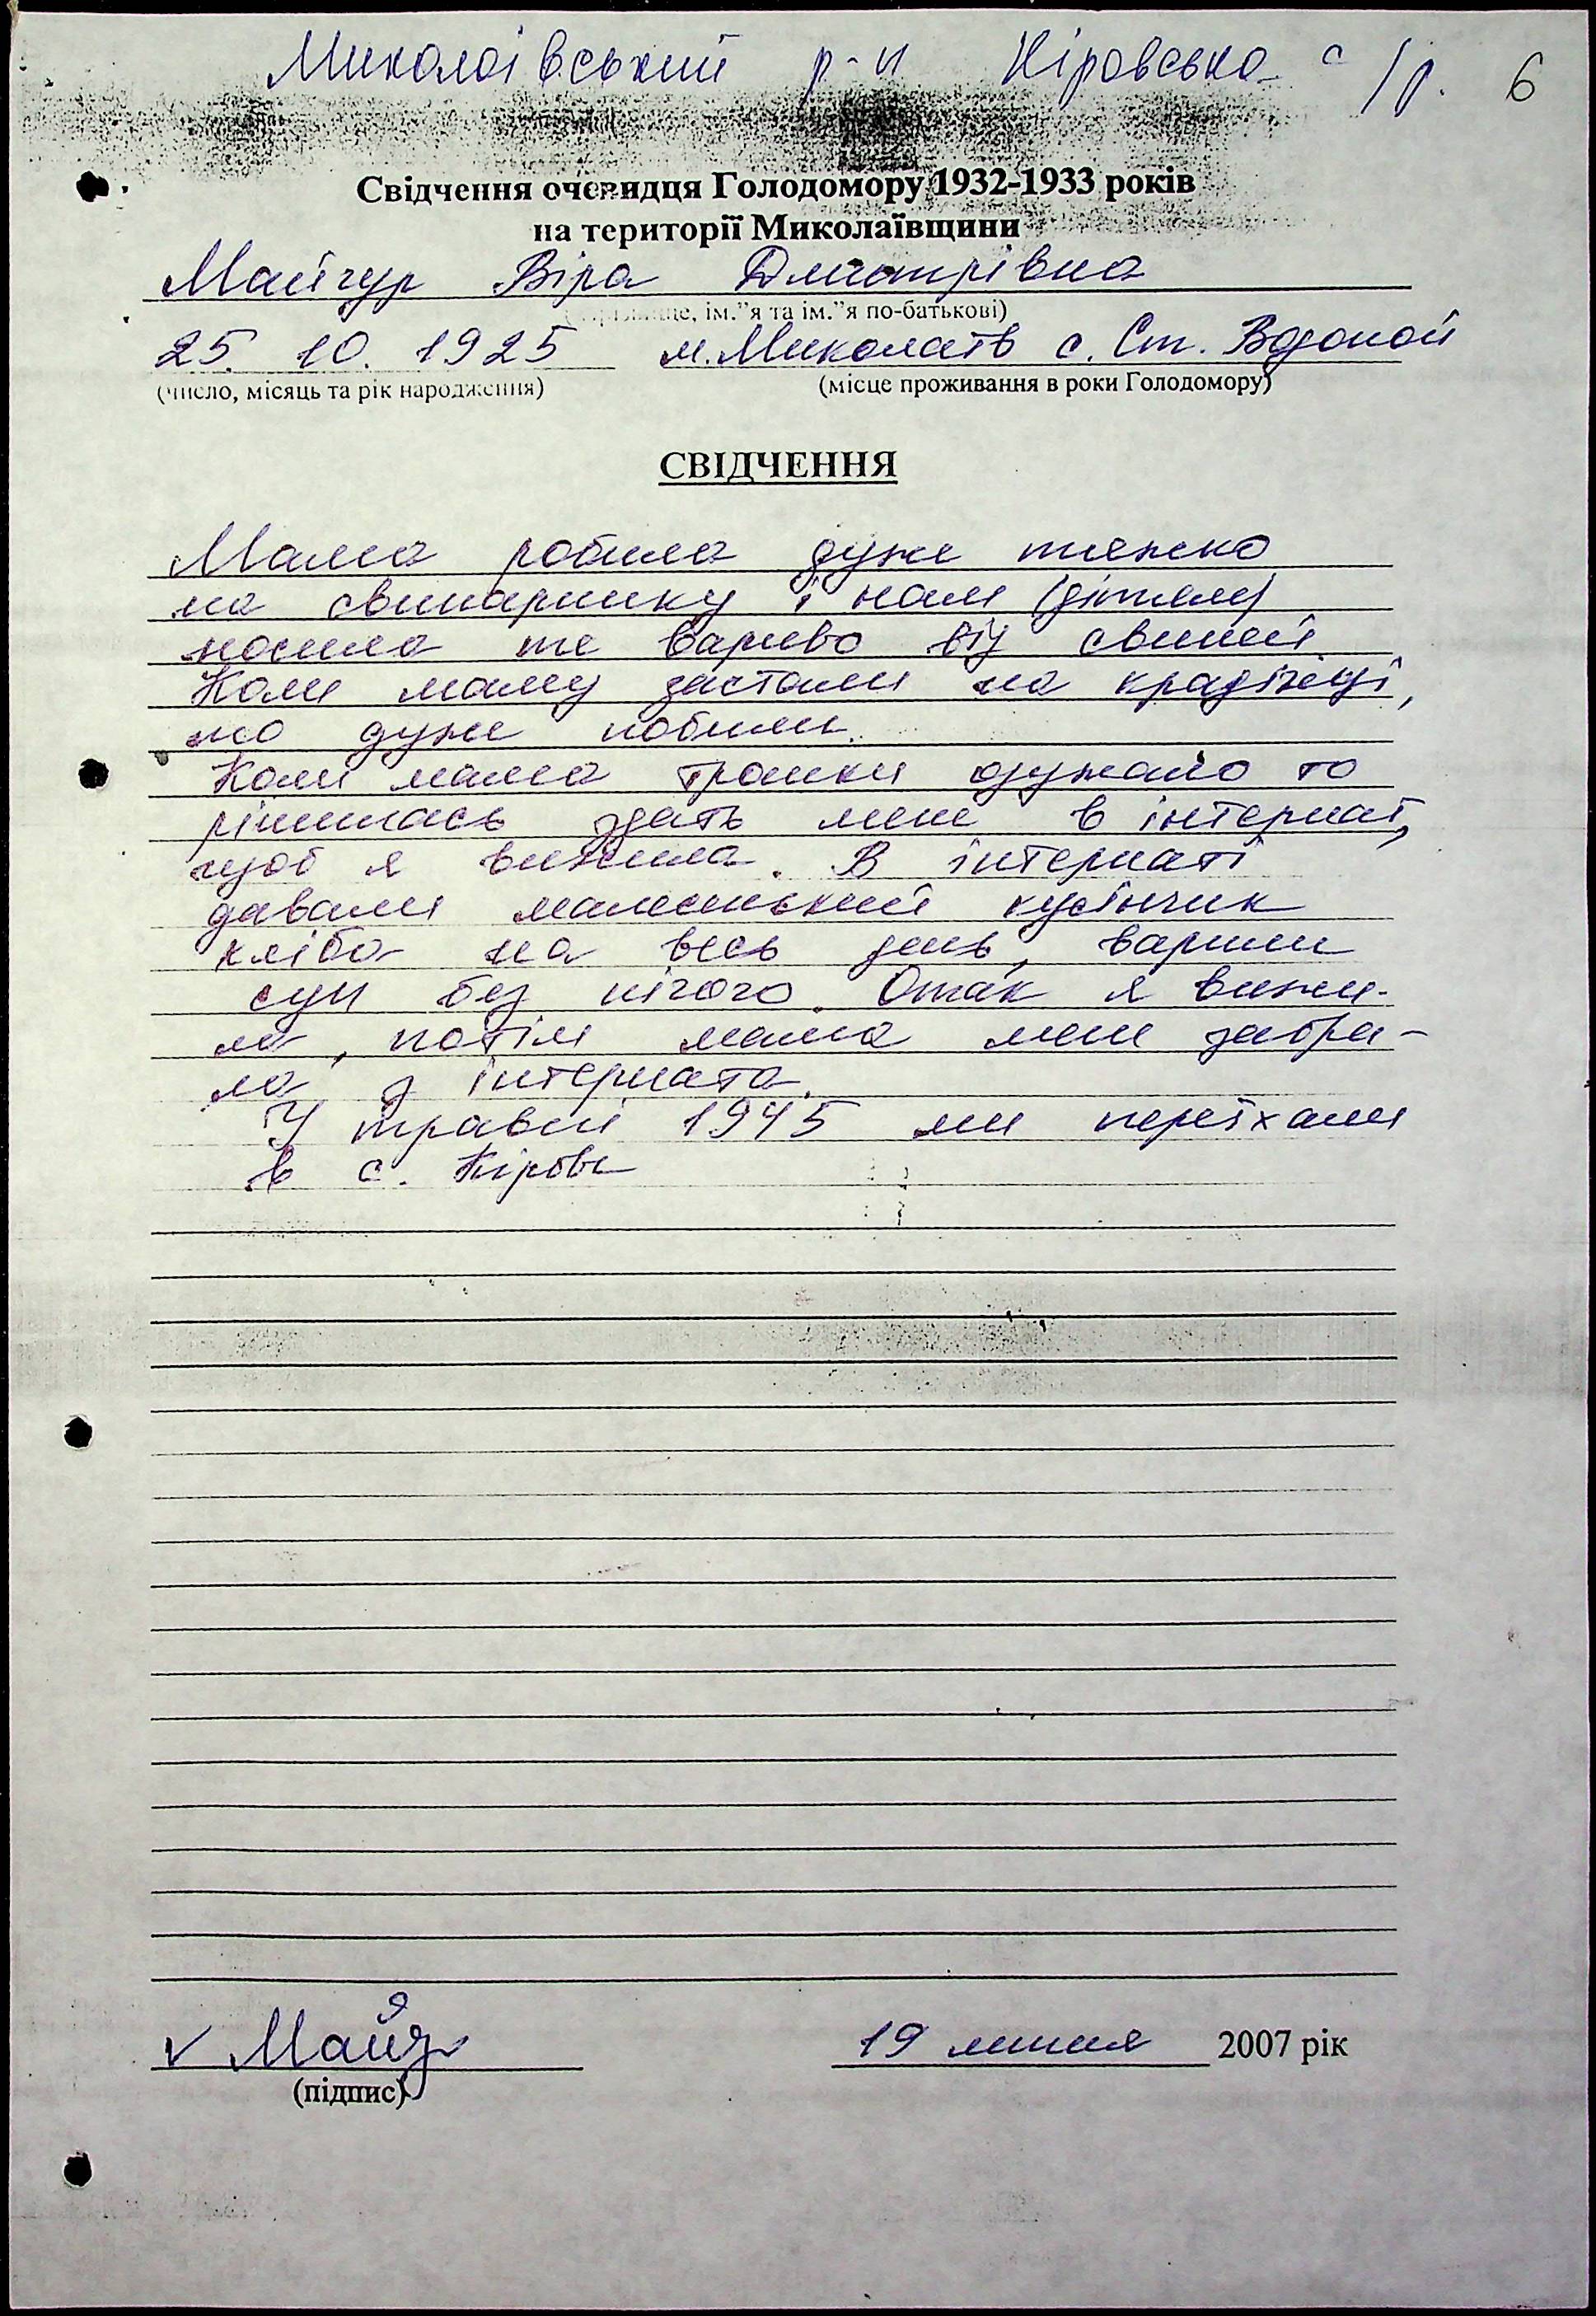 Миколаівський р-н Кіровська с/р. 6
Свідчення очевидця Голодомору 1932-1933 років
на території Миколаївщини
Майгур Віра Дмитрівна
ім."я та ім."я по-батькові)
25. 10. 1925 м. Миколаїв с. Ст. Водопой
(число, місяць та рік народження) (місце проживання в роки Голодомору)
СВІДЧЕННЯ
Мама робила дуже тяжко
на свинарнику і нам (дітям)
носила те варево від свиней.
Коли маму застали на крадіжці,
то дуже побили.
Коли мама трошки одужало то
рішилась здать мене в інтернат,
щоб я вижила. В інтернаті
давали малесинький кусінчик
хліба на весь день, варили
суп без нічого. Отак я вижи-
ла, потім мама мене забра-
ла з інтерната.
У травні 1945 ми переїхали
в с. Кірове
v Майг
(підпис)
19 липня 2007 рік